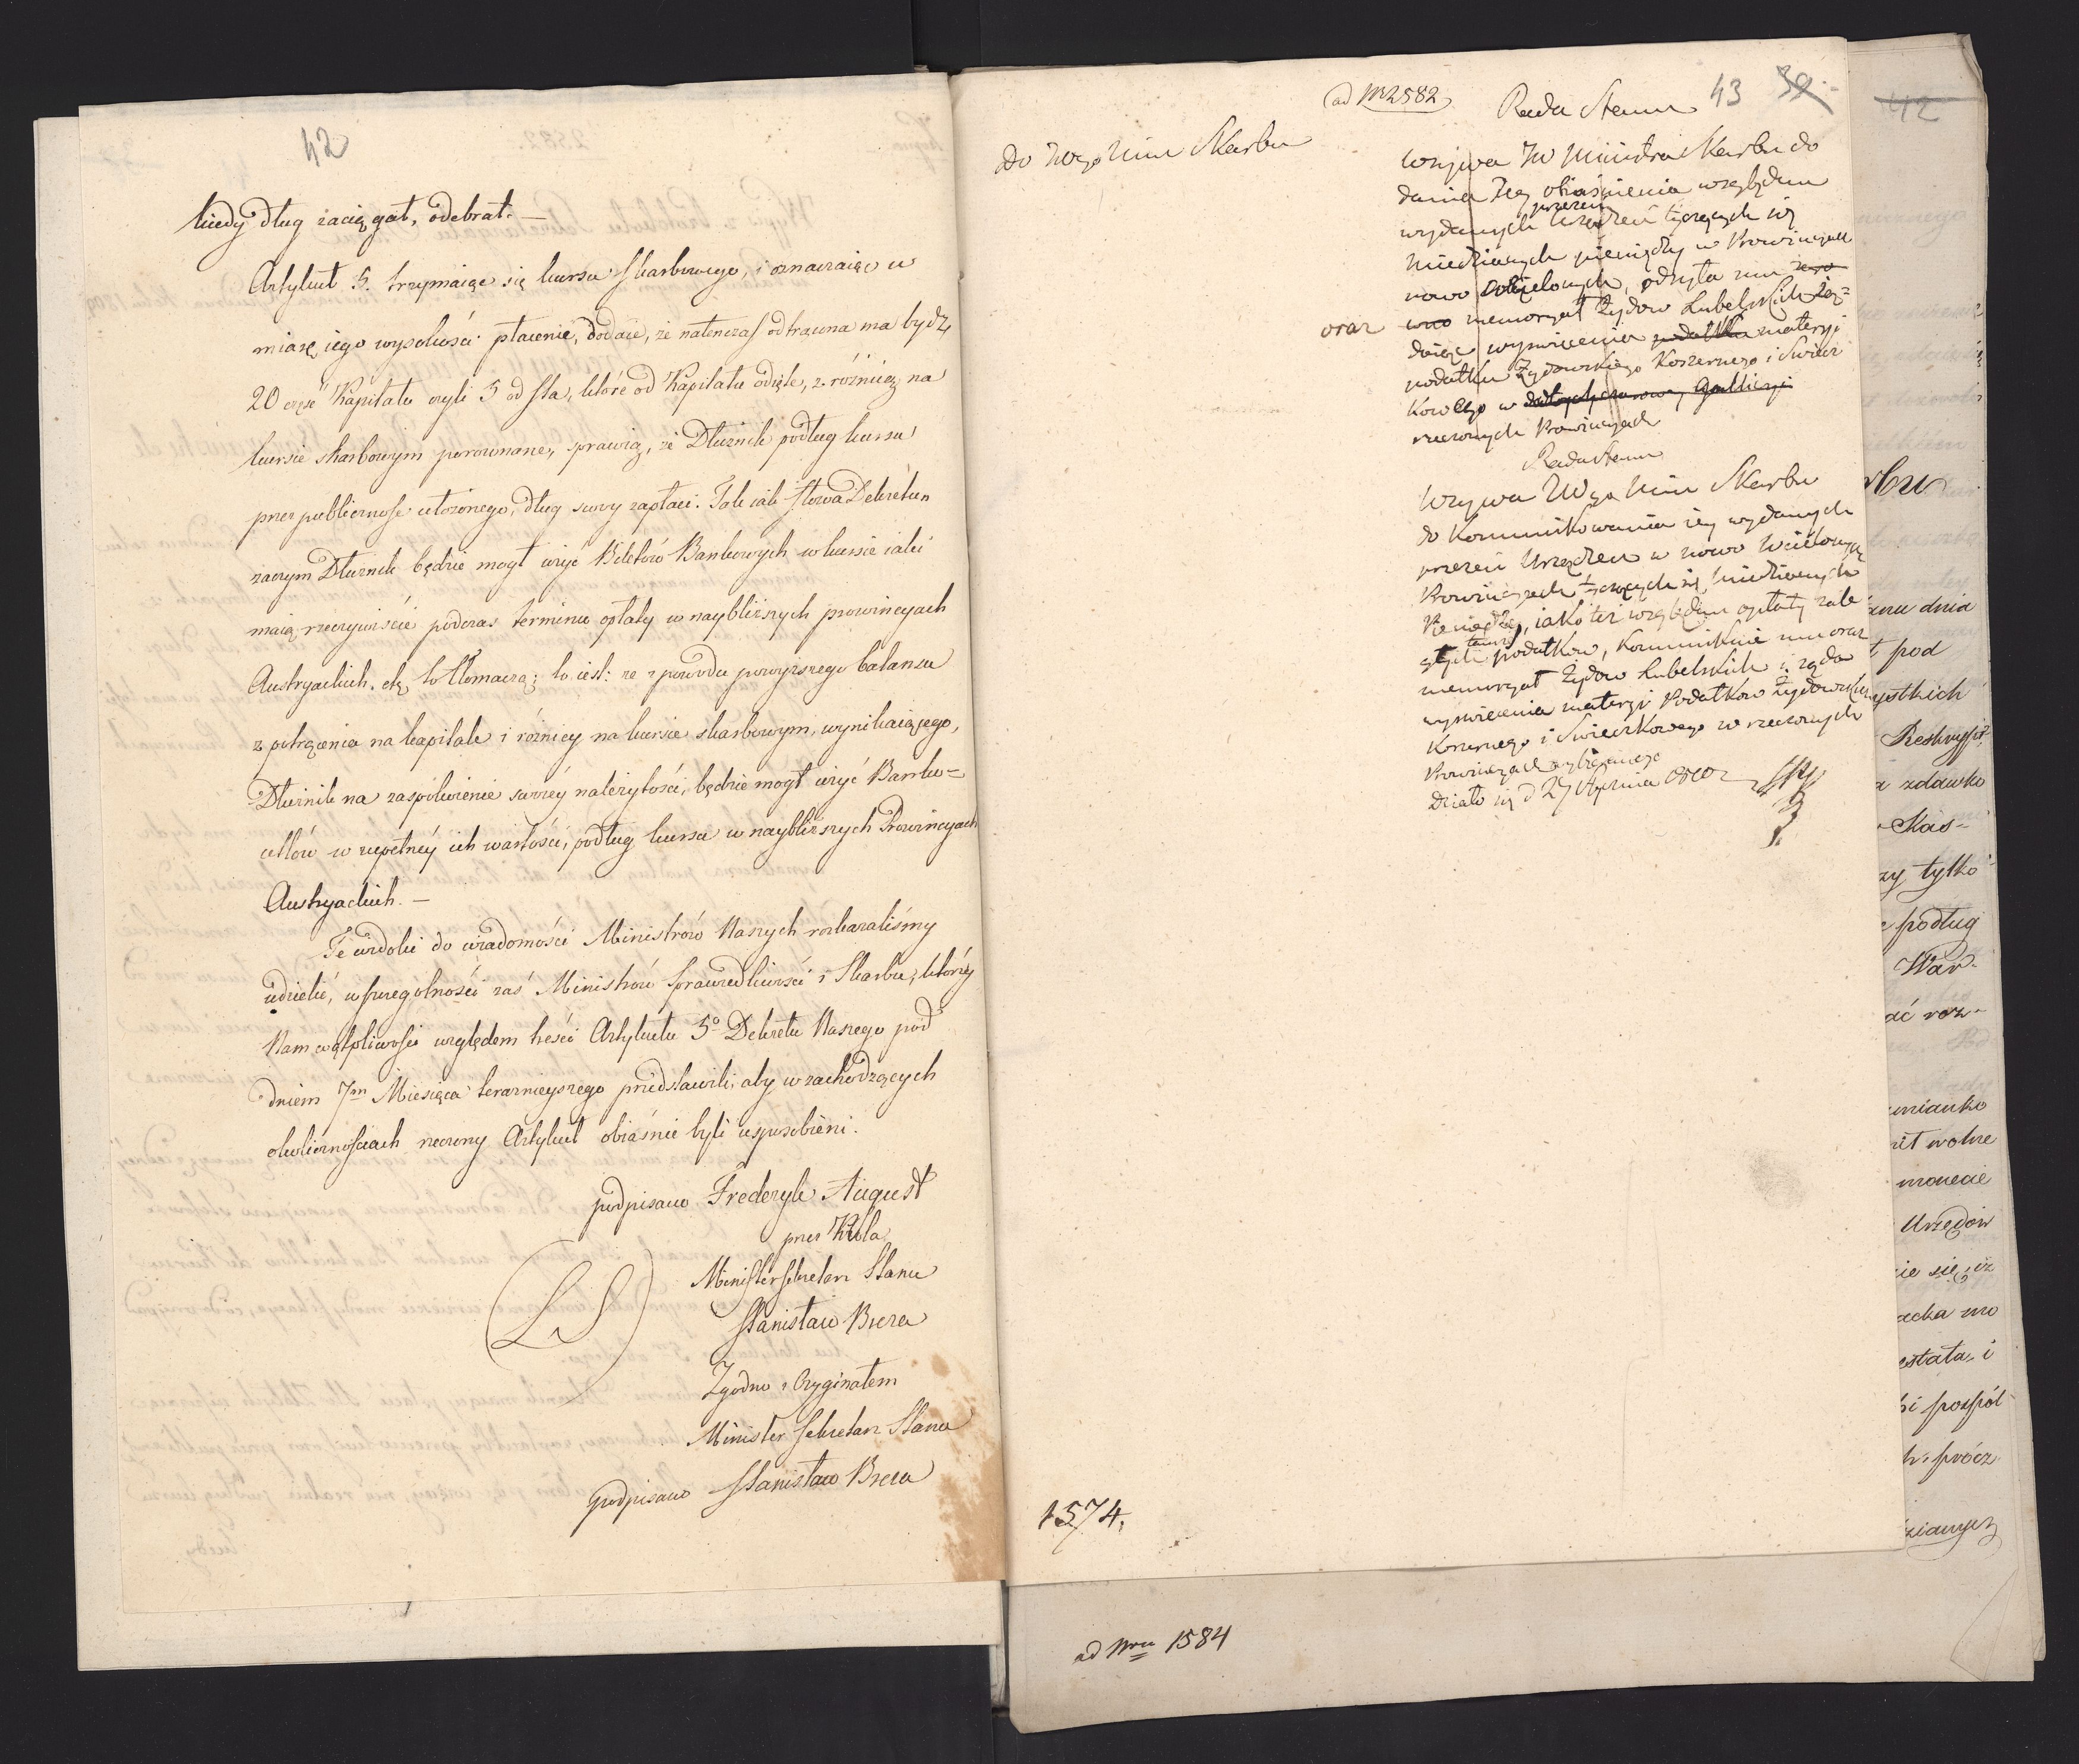 42
kiedy dług zaciągał, odebrał. —
Artykuł 5. trzymaiąc się kursu skarbowego, i oznaczaiąc w
miarę iego wysokości płacenie, dodaie, że natenczas odtrącona ma bydź
20 część Kapitału czyli 5 od sta, które od Kapitału odięte, z różnicą na
kursie skarbowym porównane, sprawią, że Dłużnik podług kursu
przez publiczność ułożonego, dług swoy zapłaci. Tak iak słowa Dekretu
zaczym Dłużnik będzie mógł użyć Biletów Bankowych w kursie iaki
maią rzeczywiście podczas terminu opłaty w naybliższych prowincyach
Austryackich. etc. to tłomaczą; to iest: że z powodu powyższego balansu
z potrącenia na kapitale i różnicy na kursie skarbowym, wynikaiącego,
Dłużnik na zaspokoienie swéy należytości, będzie mógł użyć Banko=
cetlów w zupełnéy ich wartości, podług kursu w naybliższych Prowincyach
Austryackich. —
Te pobudki do wiadomości Ministrów Naszych rozkazaliśmy
udzielić, w szczególności zaś Ministrów Sprawiedliwości i Skarbu, którzy
Nam wątpliwości względem treści Artykułu 5° Dekretu Naszego pod
dniem 7m Miesiąca teraznieyszego przedstawili, aby w zachodzących
okolicznościach rzeczony Artykuł obiaśnić byli usposobieni.
podpisano Frederyk August
przez Króla
Minister Sekretarz Stanu
(LS)
Stanisław Breza
Zgodno z Oryginałem
Minister Sekretarz Stanu
podpisano Stanisław Breza
ad Nr 2582
43 39
Rada Stanu
Do JWgo Min Skarbu
Wzywa JW Ministra Skarbu do
dania Jey obiaśnienia względem
przezeń
wydanych Urządzeń tyczących się
miedzianych pieniędzy w Prowincyach
nowo wcielonych, odsyła mu
oraz memoryał Żydow Lubelskich żą=
daiąc wyświecenia podatku materyi
podatku Żydowskiego Koszernego i Świecz
kowego w
rzeczonych Prowincyach
Rada Stanu
Wzywa JWgo Min Skarbu
do kommunikowania iey wydanych
przezeń Urządzeń w nowo wcielonych
Prowincyach tyczących się miedzianych
Pieniędzy, iako też względem opłaty zale
głych podatkow, kommunikuie mu oraz
memoryał Żydow Lubelskich i żąda
wyświecenia materyi Podatkow Żydowskich
Koszernego i Świeczkowego w rzeczonych
Prowincyach
Działo się d 27 Stycznia 1810 r
1574.
ad Nrum 1584
42
rbu
anu dnia
t pod
ystkich
Reskrypt
a zdawko
Kas-
zy tylko
podług
War-
ać roz-
mianko
ził wolne
monecie
Urzędów
ie się, iż
acka mo
estała, i
i pospół
h. prócz
zianych